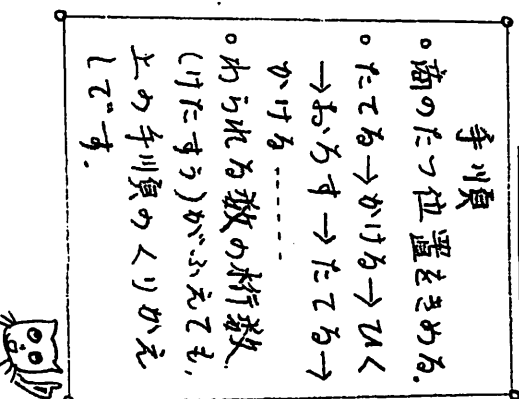 手順
。商のたつ位置をきめる。
。たてる→かける→ひく
→おろす→たてる→
かける……
。わられる数の桁数
(けたすう)がふえても、
上の手順のくりかえ
しです。